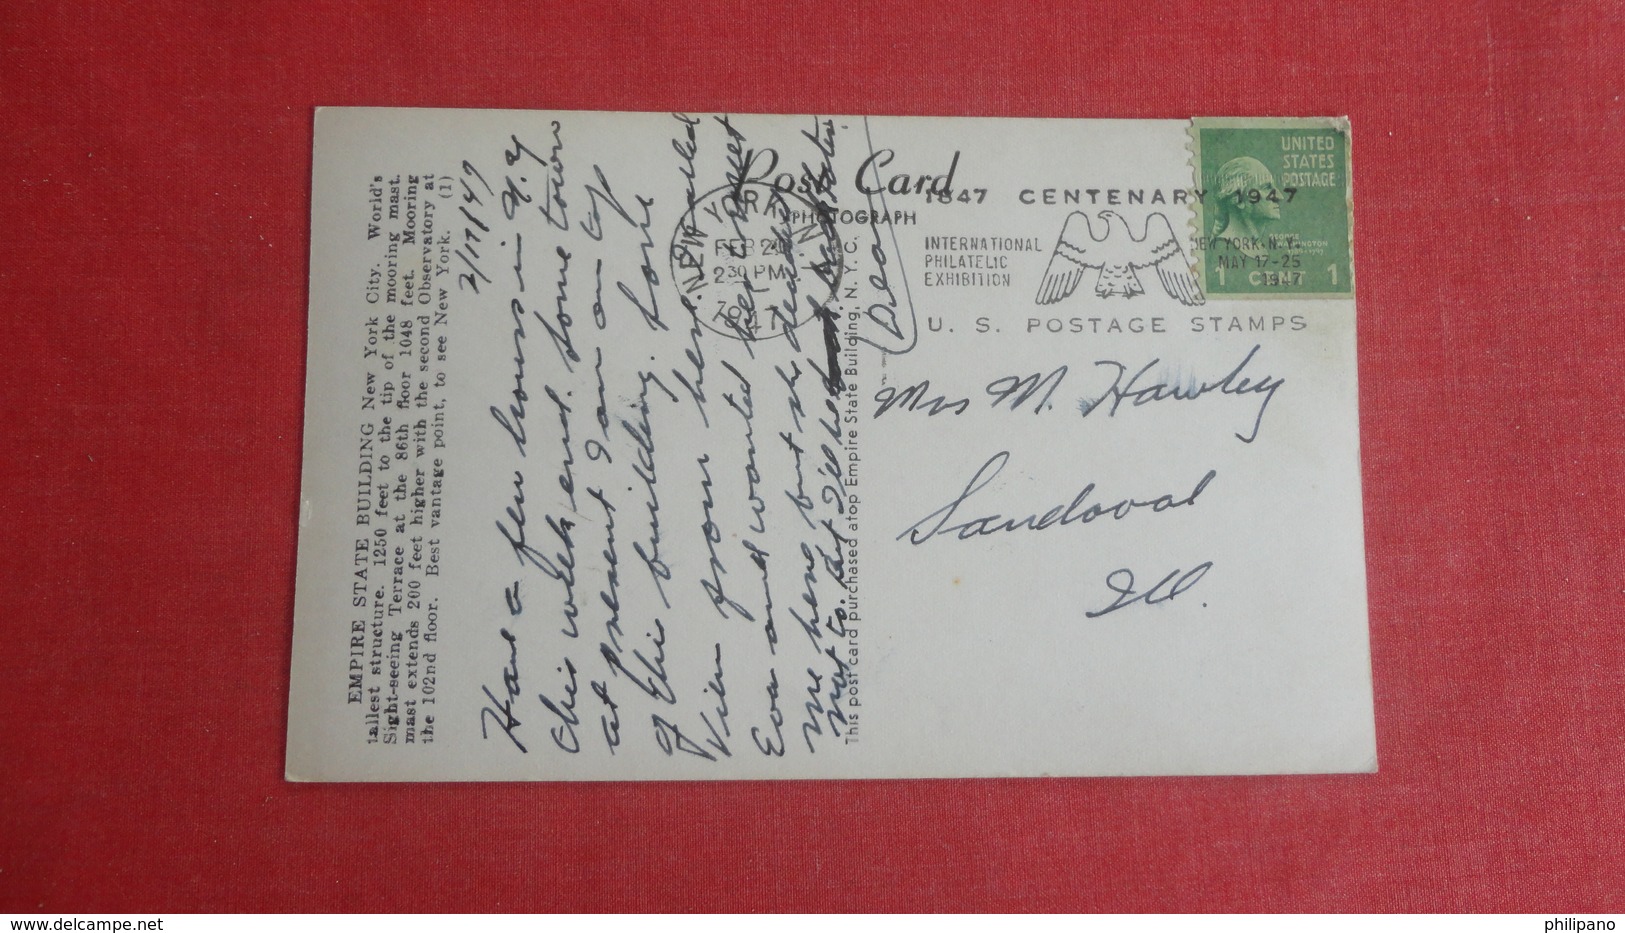 EMPIRE STATE BUILDING New York City. World's
tallest structure. 1250 feet to the tip of the mooring mast.
Sight-seeing Terrace at the 86th floor 1048 feet. Mooring
mast extends 200 feet higher with the second Observatory at
the 102nd floor. Best vantage point, to see New York. (1)
2/17/47
Have a few hours in N.Y
this week end. Some town
at present I am on top
of this building. Some
View from here. Called
Eva and wanted her to meet
me here but she decided
not to. But I'll be
Dean
This post card purchased atop Empire State Building, N. Y. C.
Post Card
PHOTOGRAPH
NEW YORK, N.Y.
FEB 2
2 30 PM
1947
1847 CENTENARY 1947
INTERNATIONAL
PHILATELIC
EXHIBITION
NEW YORK, N.Y.
MAY 17-25
1947
U. S. POSTAGE STAMPS
UNITED
STATES
POSTAGE
GEORGE
WASHINGTON
1 CENT 1
Mrs M. Hawley
Sandoval
Ill.
www.delcampe.net
philipano